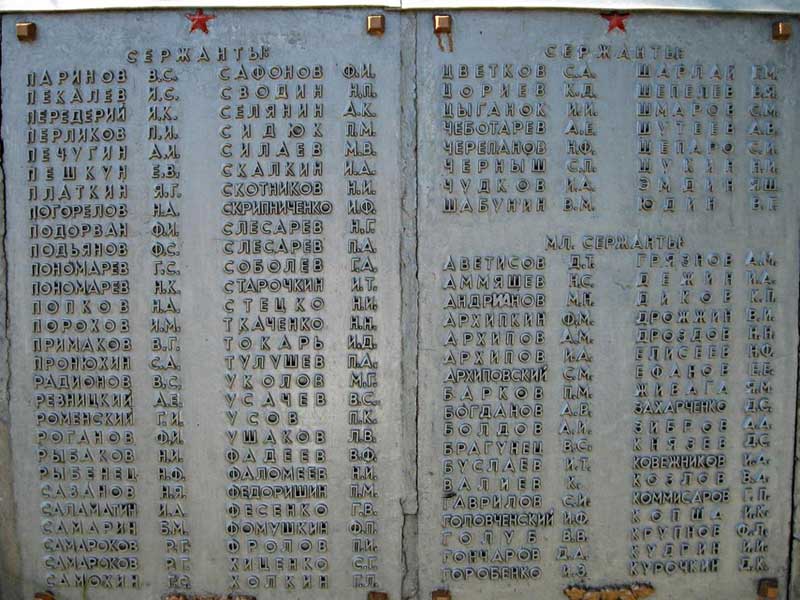 СЕРЖАНТЫ:
ПАРИНОВ В.С.
ПЕКАЛЕВ И.С.
ПЕРЕДЕРИЙ И.К.
ПЕРЛИКОВ П.И.
ПЕЧУГИН А.И.
ПЕШКУН Е.В.
ПЛАТКИН Я.Г.
ПОГОРЕЛОВ Н.А.
ПОДОРВАН Ф.И.
ПОДЬЯНОВ Ф.С.
ПОНОМАРЕВ Г.С.
ПОНОМАРЕВ Н.К.
ПОПКОВ Н.А.
ПОРОХОВ И.М.
ПРИМАКОВ В.Г.
ПРОНЮХИН С.А.
РАДИОНОВ В.С.
РЕВНИЦКИЙ А.Е.
РОМЕНСКИЙ Г.И.
РОГАНОВ Ф.И.
РЫБАКОВ Н.И.
РЫБЕНЕЦ Н.Ф.
САЗАНОВ Н.Я.
САЛАМАТИН И.А.
САМАРИН Б.М.
САМАРОКОВ Р.Г.
САМАРОКОВ Р.Г.
САМОХИН Г.С.
САФОНОВ Ф.И.
СВОДИН Н.П.
СЕЛЯНИН А.К.
СИДЮК П.М.
СИЛАЕВ М.В.
СКАЛКИН И.А.
СКОТНИКОВ Н.И.
СКРИПНИЧЕНКО И.Ф.
СЛЕСАРЕВ Н.Г.
СЛЕСАРЕВ П.А.
СОБОЛЕВ Г.А.
СТАРОЧКИН И.Т.
СТЕЦКО Н.И.
ТКАЧЕНКО Н.Н.
ТОКАРЬ И.Д.
ТУЛУШЕВ П.А.
УКОЛОВ М.Г.
УСАЧЕВ В.С.
УСОВ П.К.
УШАКОВ Л.В.
ФАДЕЕВ В.Ф.
ФАЛОМЕЕВ Н.И.
ФЕДОРИШИН П.М.
ФЕСЕНКО Г.В.
ФОМУШКИН Ф.П.
ФРОЛОВ П.И.
ХИЦЕНКО С.Г.
ХОЛКИН Г.П.
СЕРЖАНТЫ:
ЦВЕТКОВ С.А.
ЦОРИЕВ К.Д.
ЦЫГАНОК И.И.
ЧЕБОТАРЕВ А.Е.
ЧЕРЕПАНОВ Н.Ф.
ЧЕРНЫШ С.П.
ЧУДКОВ И.А.
ШАБУНИН В.М.
ШАРЛАЙ
ШЕПЕЛЕВ
ШМАРОВ С.М.
ШУТЕЕВ А.В.
ШЕПАРО С.И.
ЩУКИН Н.И.
ЭМДИН Я.Ш.
ЮДИН В.Г.
МЛ. СЕРЖАНТЫ:
АВЕТИСОВ Д.Т.
АММЯШЕВ Н.С.
АНДРИАНОВ М.Н.
АРХИПКИН Ф.М.
АРХИПОВ А.М.
АРХИПОВ И.А.
АРХИПОВСКИЙ С.М.
БАРКОВ П.М.
БОГДАНОВ А.Р.
БОЛДОВ А.И.
БРАГУНЕЦ В.С.
БУСЛАЕВ И.Т.
ВАЛИЕВ К.
ГАВРИЛОВ С.И.
ГОЛОВЧЕНСКИЙ И.Ф.
ГОЛУБ В.В.
ГОНЧАРОВ Д.А.
ГОРОБЕНКО И.З.
ГРЯЗНОВ А.И.
ДЕЖИН И.А.
ДИКОВ К.П.
ДРОЖЖИН В.И.
ДРОЗДОВ Н.Н.
ЕЛИСЕЕВ Н.Ф.
ЕФАНОВ Е.Е.
ЖИВАГА Я.М.
ЗАХАРЧЕНКО Д.С.
ЗИБРОВ А.А.
КНЯЗЕВ Д.С.
КОВЕЖНИКОВ И.А.
КОЗЛОВ В.А.
КОММИСАРОВ Г.П.
КОПША И.К.
КРУПНОВ Ф.Л.
КУДРИН И.И.
КУРОЧКИН Д.К.